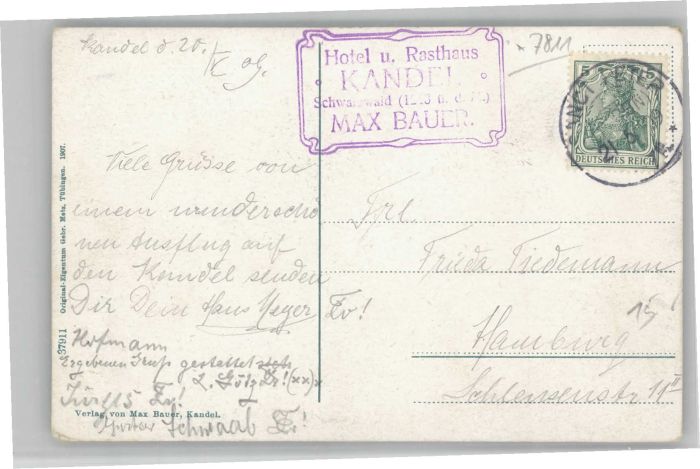 Kandel d. 20.
/X 09.
Hotel u. Rasthaus
KANDEL
Schwarzwald (1243 m. d. M.)
MAX BAUER.
7811
5 5
SANKT PETER
DEUTSCHES REICH
Viele Grüsse von
einem wunderschö
nen Ausflug auf
den Kandel senden
Dir Dein Hans Meyer
Hofmann
Ergebenen Gruß gestattet sich
Schwaab
Frl
Frieda Tiedemann
Hamburg
Schleusenstr 11 II
15
Original-Eigentum Gebr. Metz, Tübingen. 1907.
37911
Verlag von Max Bauer, Kandel.